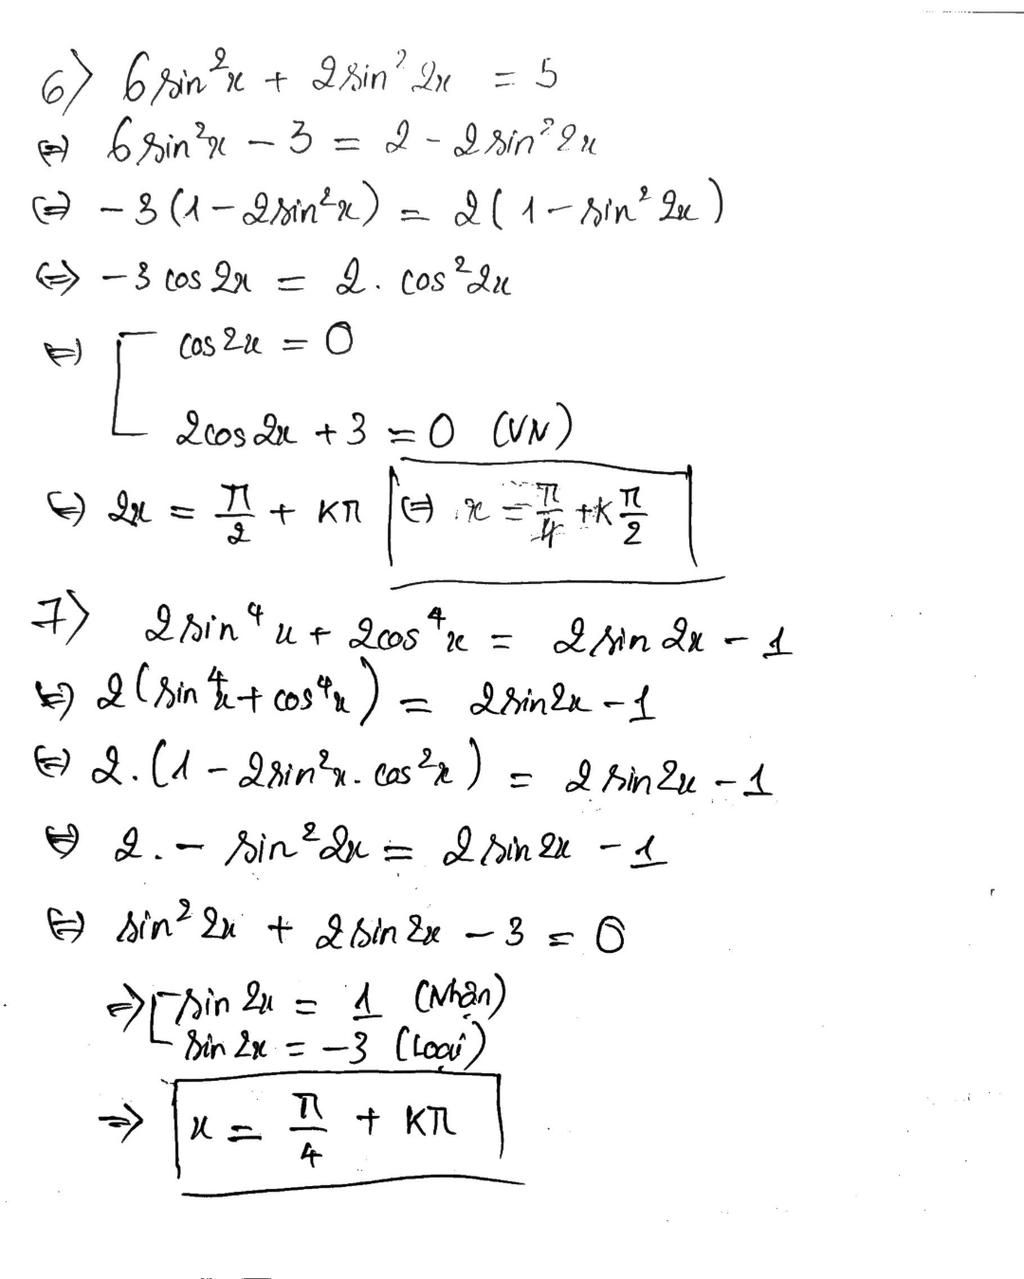 6) 6 sin²x + 2 sin² 2x = 5
⇔ 6 sin²x - 3 = 2 - 2 sin² 2x
⇔ -3 (1 - 2 sin²x) = 2 (1 - sin² 2x)
⇔ -3 cos 2x = 2. cos² 2x
⇔ [ cos 2x = 0
2 cos 2x + 3 = 0 (VN)
⇔ 2x = π/2 + kπ ⇔ x = π/4 + k π/2
7) 2 sin⁴ x + 2 cos⁴ x = 2 sin 2x - 1
⇔ 2 (sin⁴x + cos⁴x) = 2 sin 2x - 1
⇔ 2. (1 - 2 sin²x. cos²x) = 2 sin 2x - 1
⇔ 2. - sin² 2x = 2 sin 2x - 1
⇔ sin² 2x + 2 sin 2x - 3 = 0
⇒ [ sin 2x = 1 (Nhận)
sin 2x = -3 (Loại)
⇒ x = π/4 + kπ